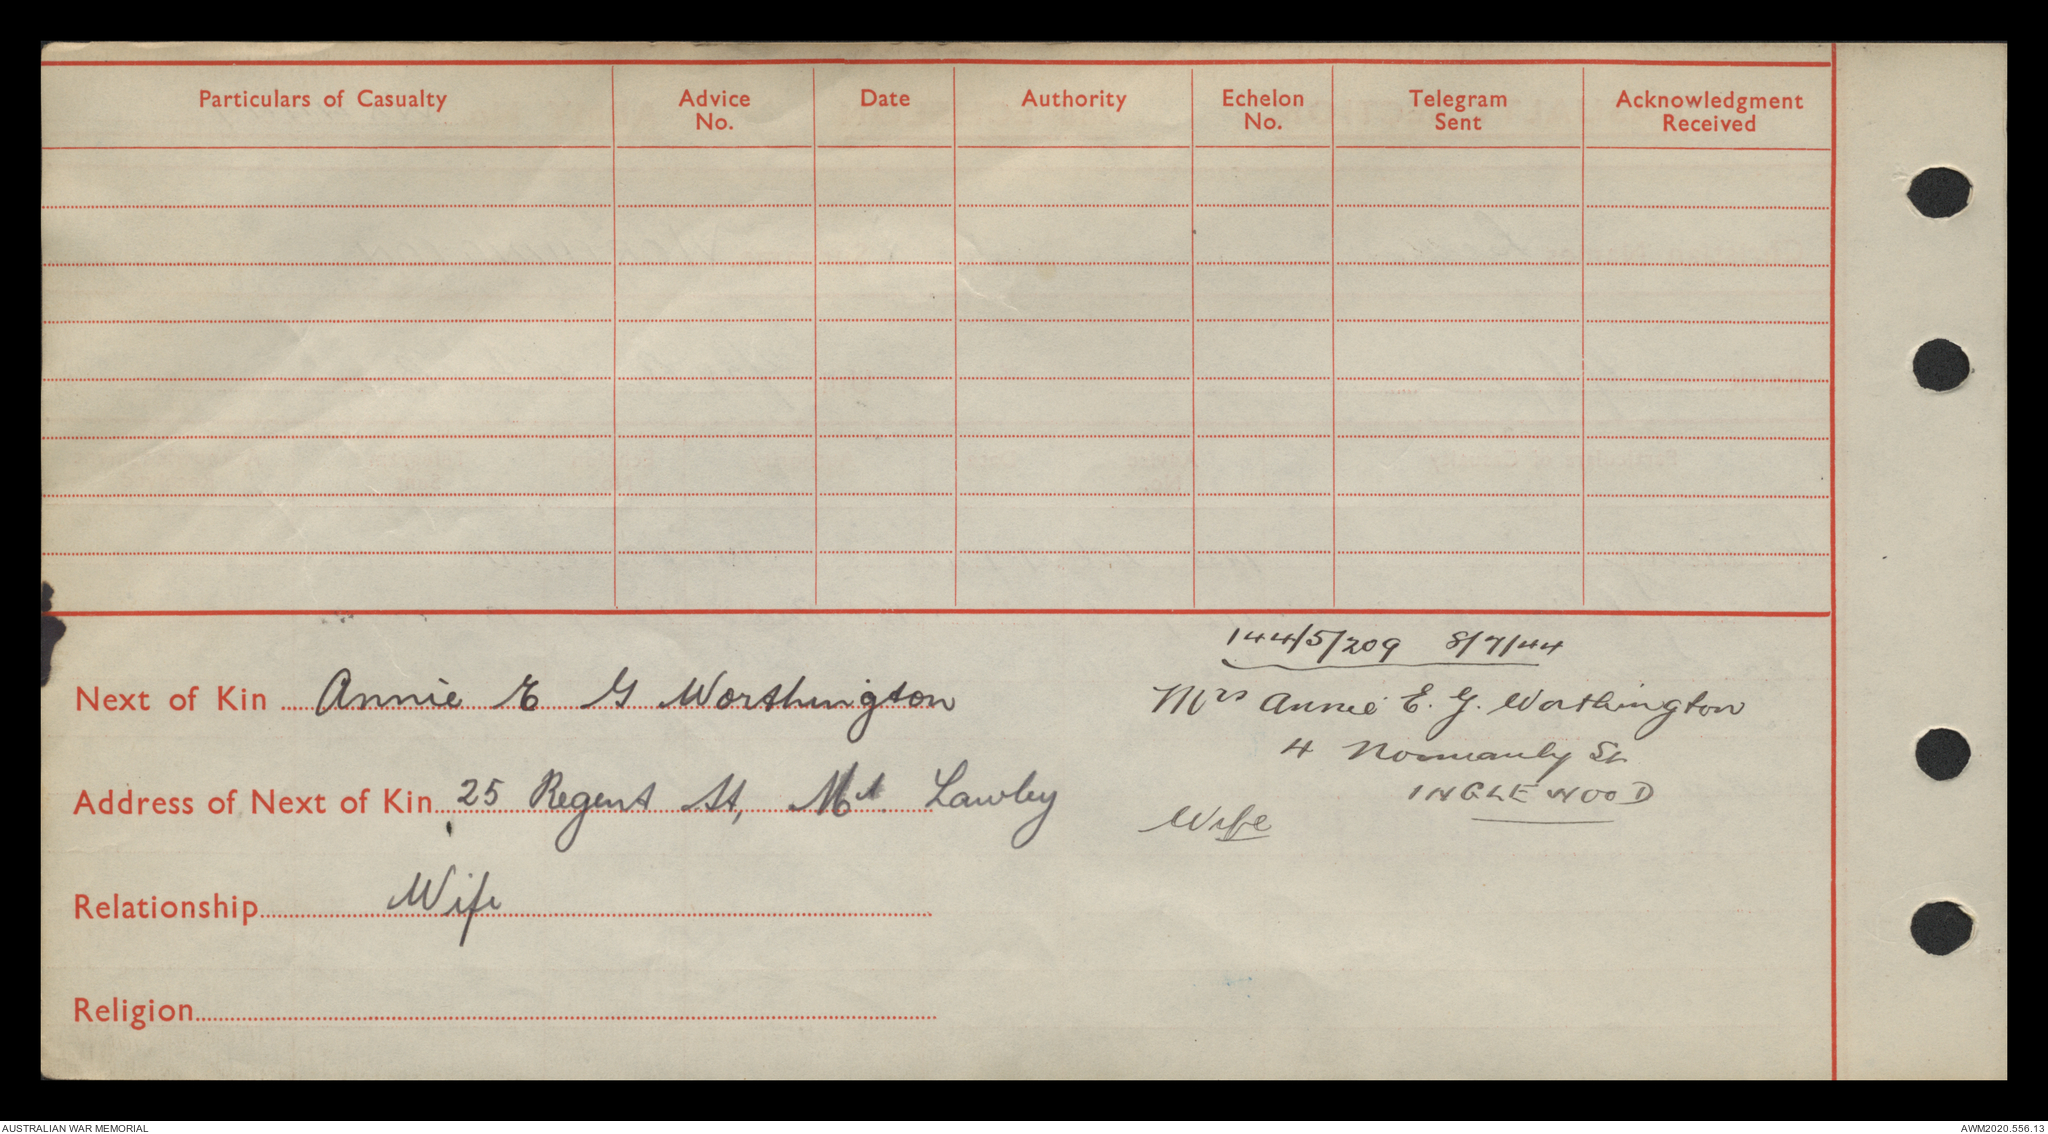 Particulars of Casualty Advice No. Date Authority Echelon No. Telegram Sent Acknowledgment Received
144/5/209 8/7/44
Next of Kin Annie E G Worthington
Mrs Annie E. G. Worthington
4 Normanby St
INGLEWOOD
Address of Next of Kin 25 Regent St, Mt Lawley
Wife
Relationship Wife
Religion
AUSTRALIAN WAR MEMORIAL
AWM2020.556.13